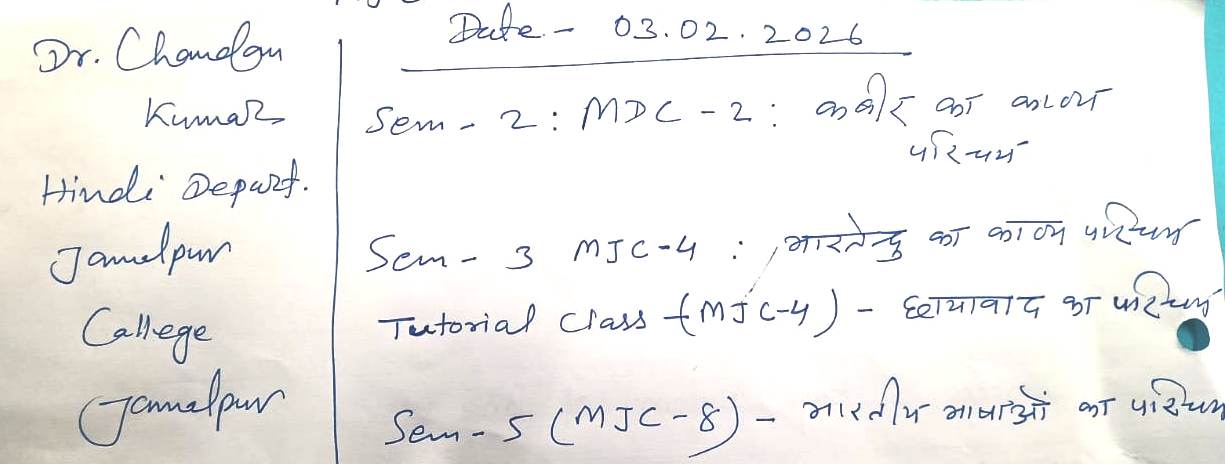 Dr. Chandan
Kumar
Hindi Depart.
Jamalpur
College
Jamalpur
Date - 03.02.2026
Sem - 2 : MDC - 2 : कबीर का काव्य
परिचय
Sem - 3 MJC-4 : भारतेन्दु का काव्य परिचय
Tutorial Class (MJC-4) - छायावाद का परिचय
Sem - 5 (MJC - 8) - भारतीय भाषाओं का परिचय